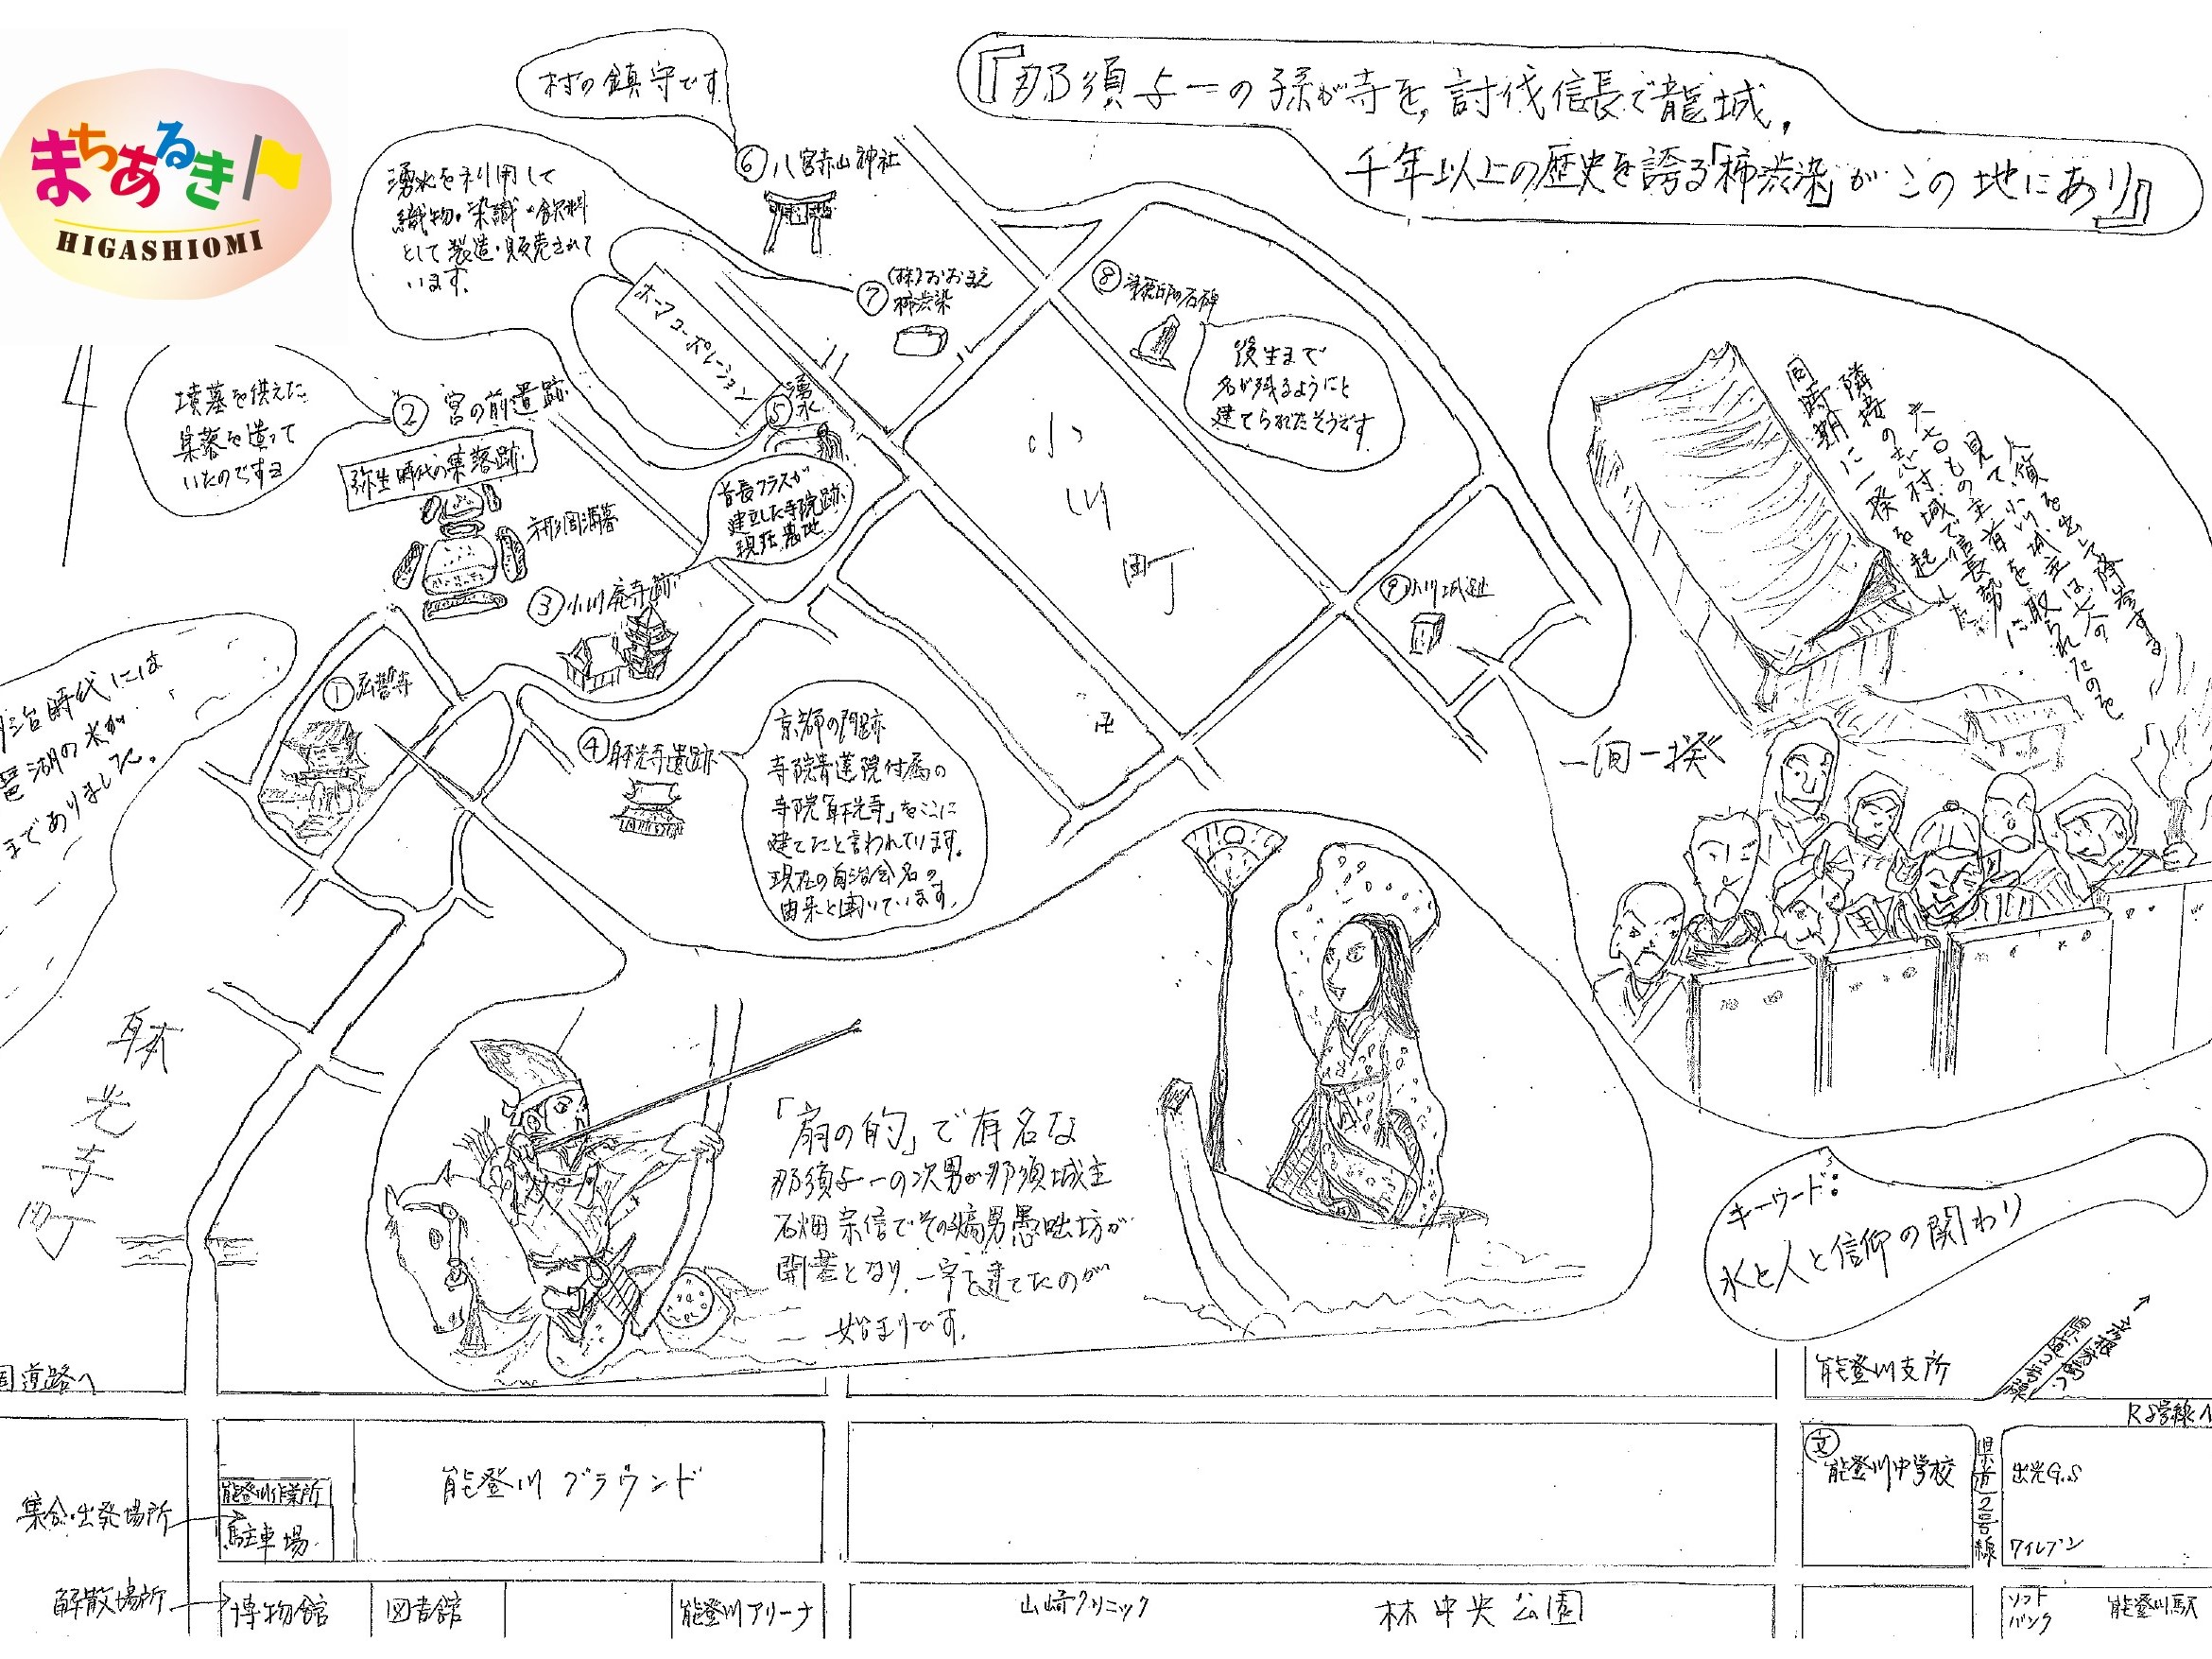 まちあるき
HIGASHIOMI
『那須与一の孫が寺を,討伐信長で龍城,
千年以上の歴史を誇る「柿渋染」がこの地にあり』
村の鎮守です
⑥八宮赤山神社
湧水を利用して
織物・染織・飲料
として製造・販売されて
います。
⑦(株)おおまえ
柿渋染
オーマコーポレーション
⑤湧水
⑧ の石碑
後生まで
名が残るようにと
建てられたそうです
墳墓を供えた
集落を造って
いたのですョ
②宮の前遺跡
弥生時代の集落跡
方形周溝墓
首長クラスが
建立した寺院跡
現在墓地
③小川廃寺跡
小川町
⑨小川城趾
卍
同時期に一揆を起した
隣接の志村城で信長勢に
六七〇もの主首を取られたのを
見て、小川城主は七人の
人質を出して降参する
一向一揆
①弘誓寺
明治時代には
琵琶湖の水が
まで ありました。
④躰光寺遺跡
京都の門跡
寺院青蓮院付属の
寺院「躰光寺」をここに
建てたと言われています。
現在の自治会名の
由来と聞いています。
躰光寺町
「扇の的」で有名な
那須与一の次男が那須城主
石畑宗信でその嫡男愚咄坊が
開基となり、一宇を建てたのが
始まりです。
キーワード:
水と人と信仰の関わり
国道路へ
能登川支所
R8号線へ
集合・出発場所
能登川作業所
駐車場
能登川グラウンド
文
能登川中学校
県道2号線
出光G.S
ワイレブン
解散場所
博物館
図書館
能登川アリーナ
山崎クリニック
林中央公園
ソフト
バンク
能登川駅